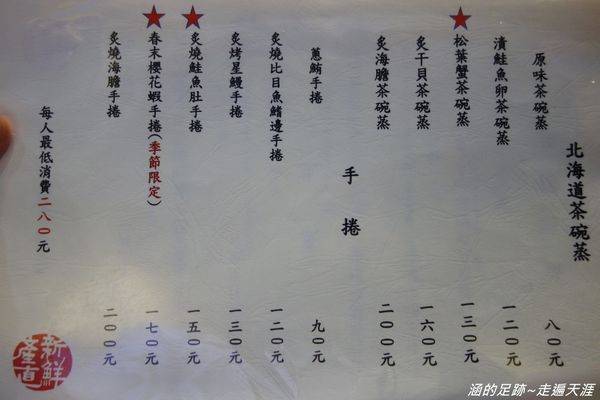 北海道茶碗蒸
原味茶碗蒸 八〇元
漬鮭魚卵茶碗蒸 一二〇元
★松葉蟹茶碗蒸 一三〇元
炙干貝茶碗蒸 一六〇元
炙海膽茶碗蒸 二〇〇元
手捲
蔥鮪手捲 九〇元
炙燒比目魚鰭邊手捲 一二〇元
炙烤星鰻手捲 一三〇元
★炙燒鮭魚肚手捲 一五〇元
★春末櫻花蝦手捲(季節限定) 一七〇元
炙燒海膽手捲 二〇〇元
每人最低消費二八〇元
新鮮產直
涵的足跡~走遍天涯